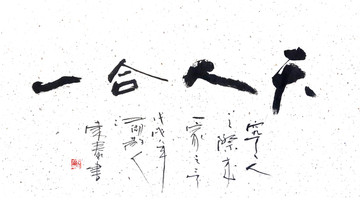 天人合一
究天人
之際成
一家之言
戊戌年
書